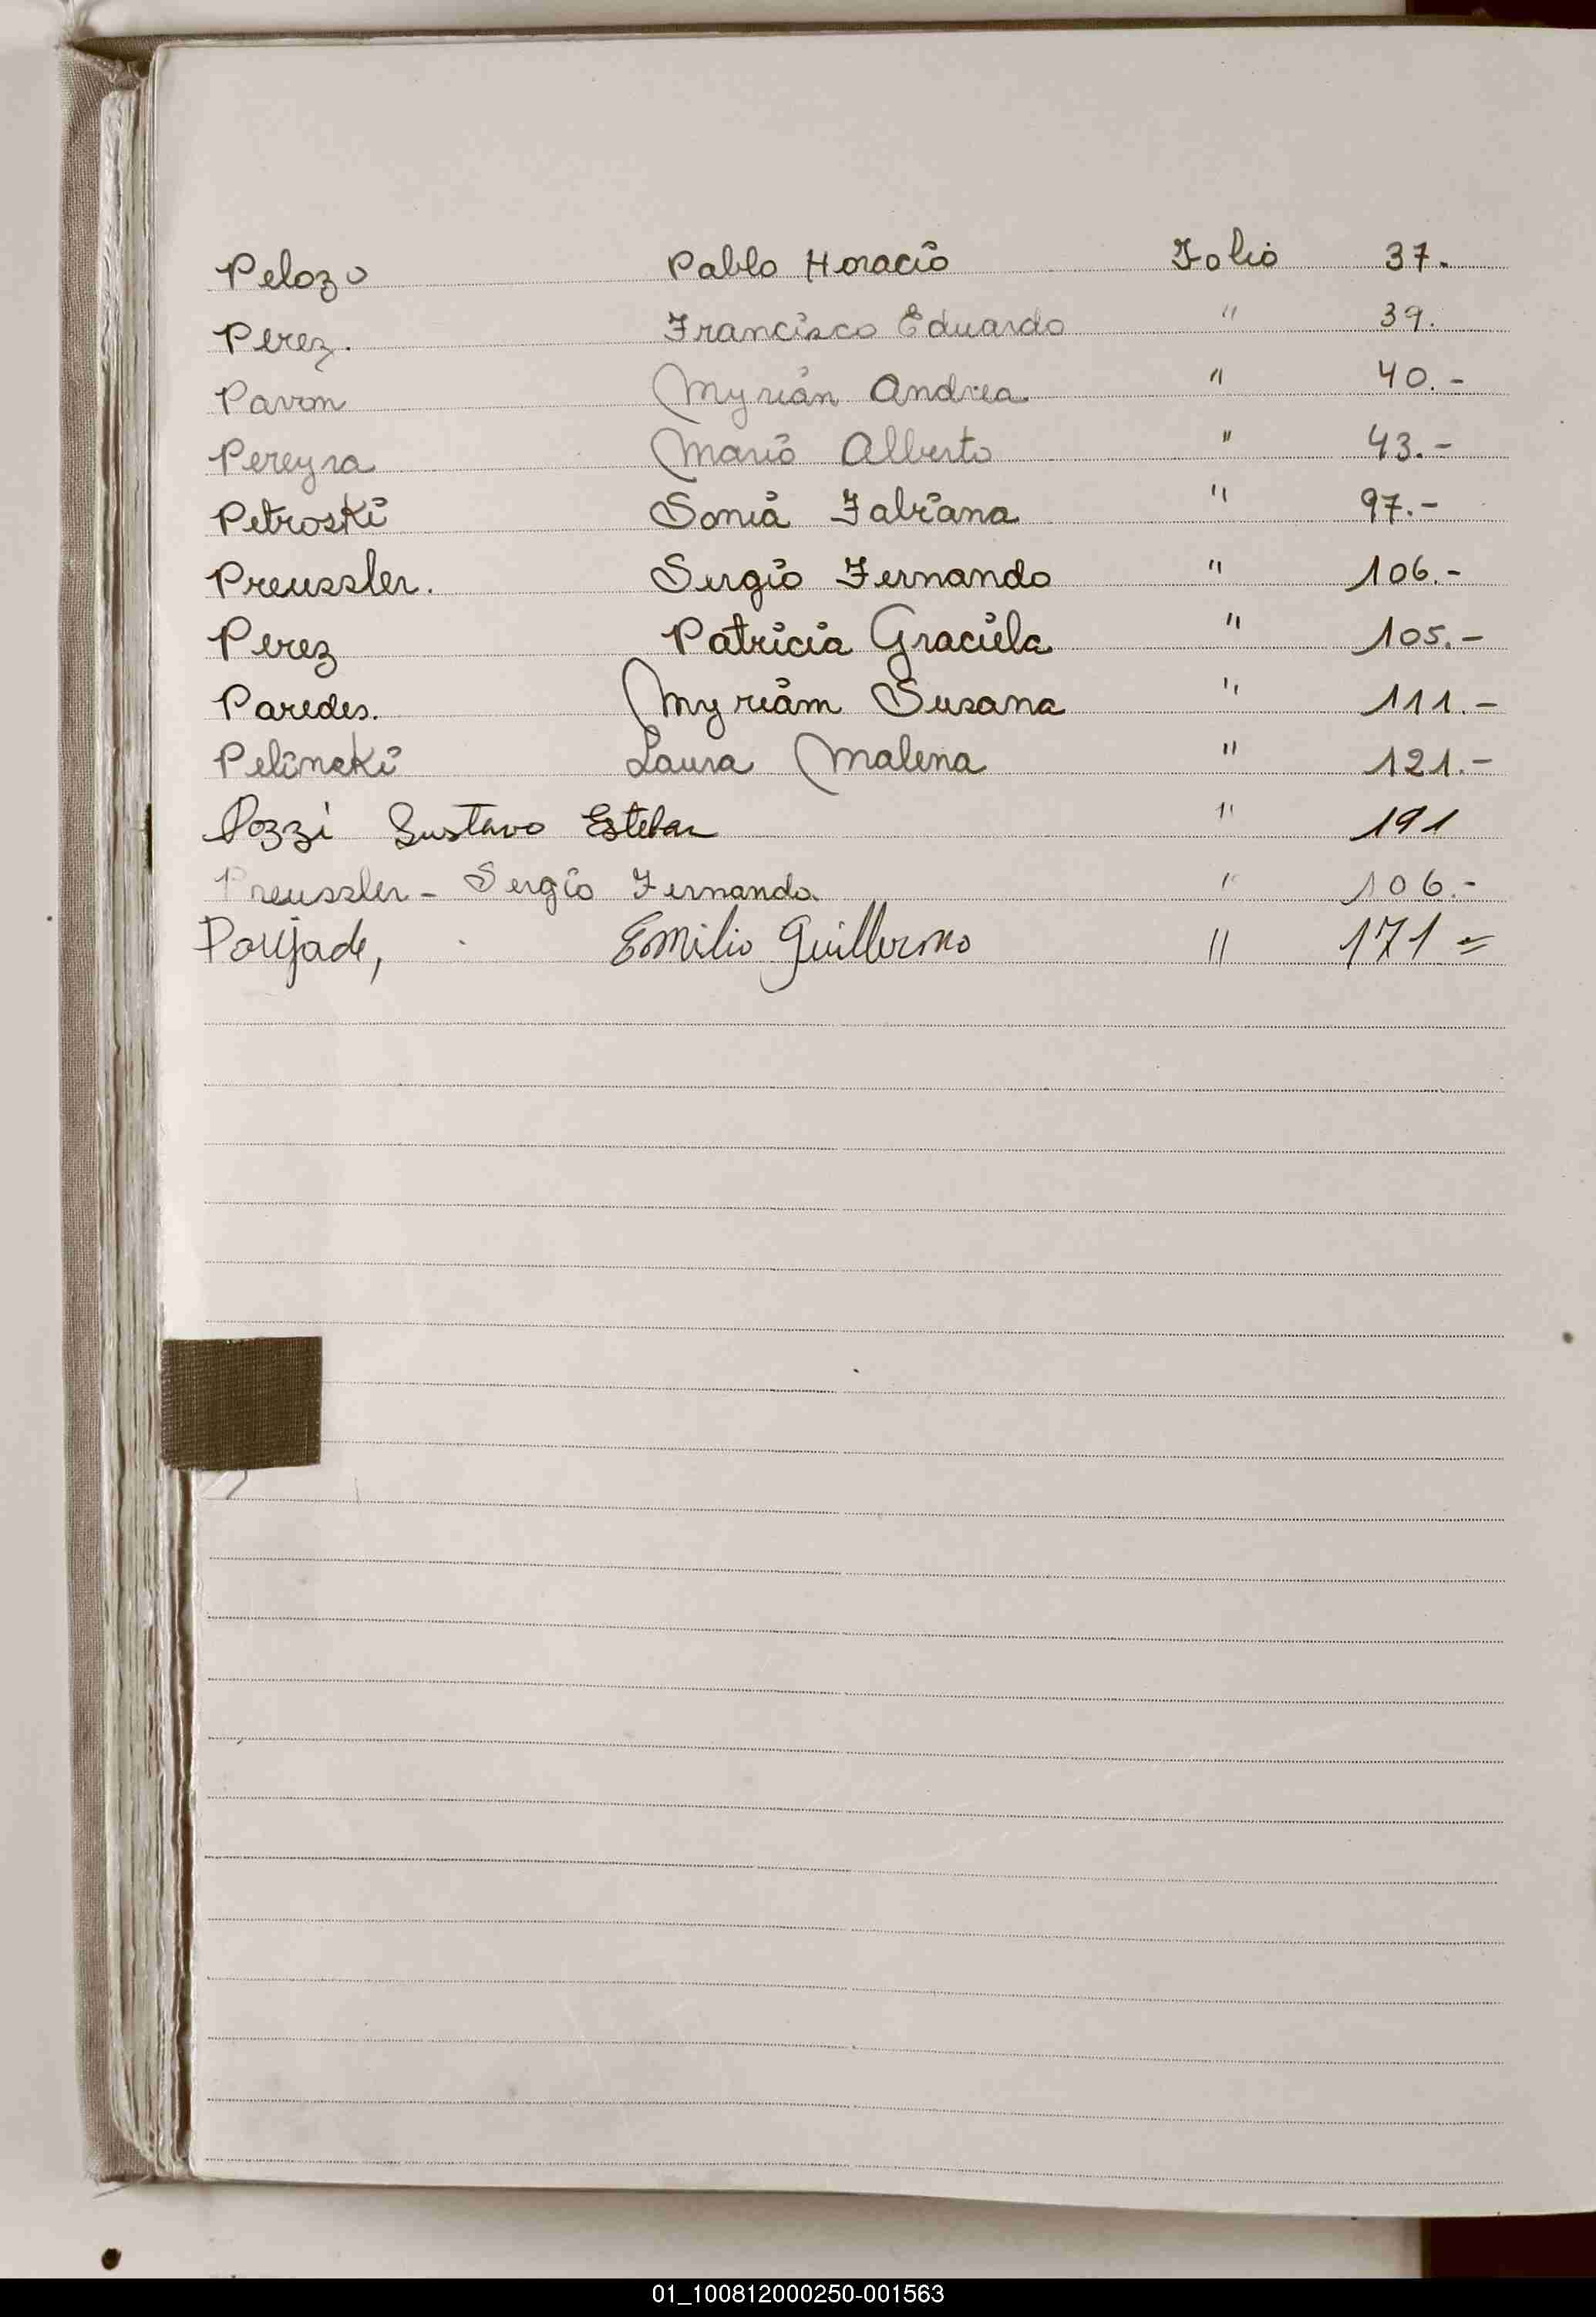 Pelozo Pablo Horacio Folio 37.
Perez. Francisco Eduardo " 39.
Pavon Myrián Andrea " 40.-
Pereyra Mario Alberto " 43.-
Petroski Sonia Fabiana " 97.-
Preussler. Sergio Fernando " 106.-
Perez Patricia Graciela " 105.-
Paredes. Myriam Susana " 111.-
Pelinski Laura Malena " 121.-
Pozzi Gustavo Esteban " 191
Preussler - Sergio Fernando " 106.-
Poujade, Emilio Guillermo " 171 =
01_100812000250-001563